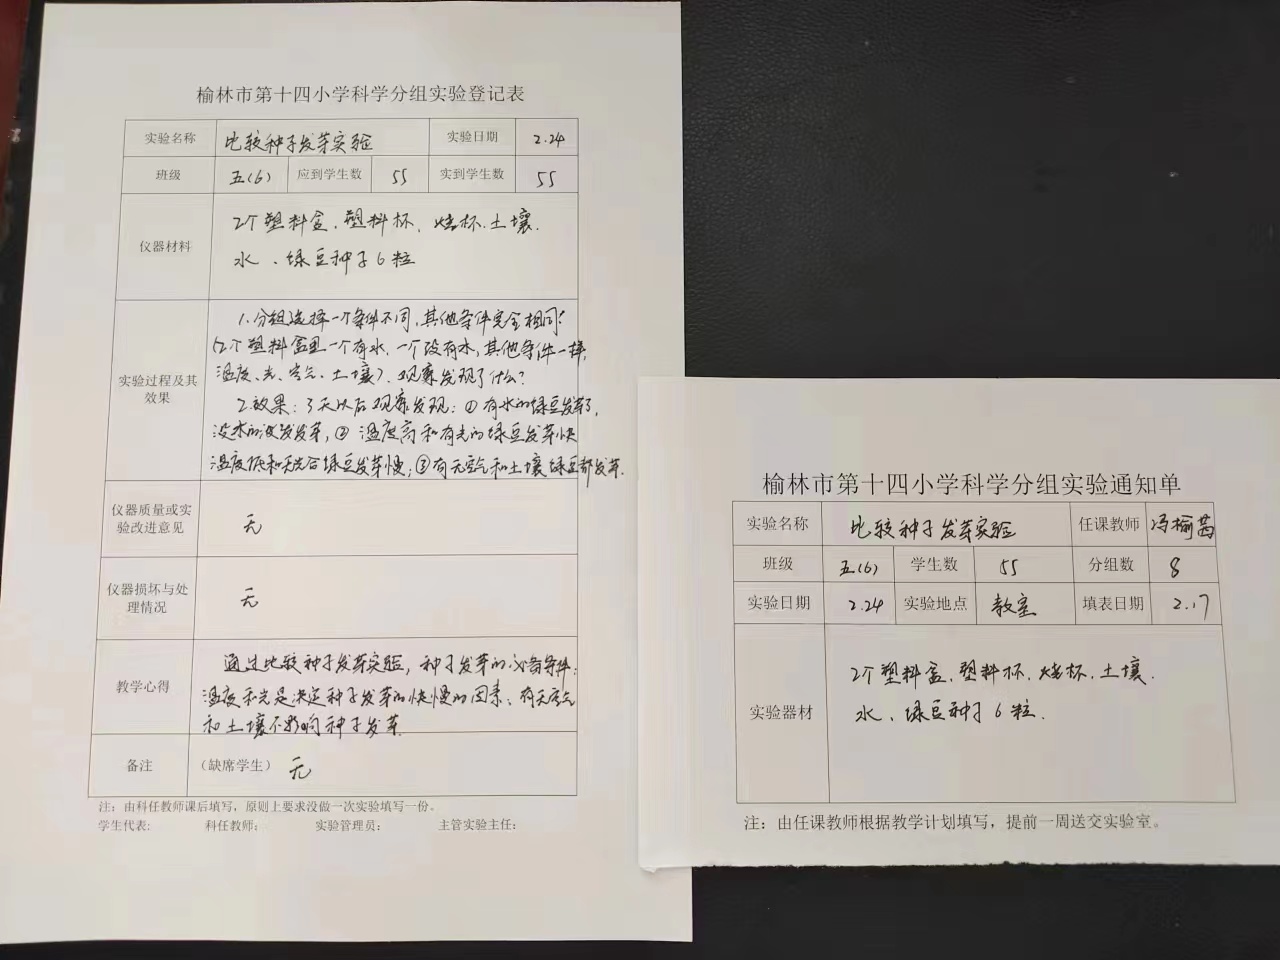 榆林市第十四小学科学分组实验登记表
实验名称 比较种子发芽实验 实验日期 2.24
班级 五(6) 应到学生数 55 实到学生数 55
仪器材料
2个塑料盒、塑料杯、烧杯、土壤、
水、绿豆种子6粒
实验过程及其
效果
1.分组选择一个条件不同,其他条件完全相同!
(2个塑料盒里一个有水,一个没有水,其他条件一样,
温度、光、空气、土壤),观察发现了什么?
2.效果:3天以后观察发现:①有水的绿豆发芽了,
没水的没发芽,②温度高和有光的绿豆发芽快
温度低和无光合绿豆发芽慢;③有无空气和土壤绿豆都发芽.
仪器质量或实
验改进意见
无
仪器损坏与处
理情况
无
教学心得
通过比较种子发芽实验,种子发芽的必备条件:
温度和光是决定种子发芽的快慢的因素、有无空气
和土壤不影响种子发芽.
备注 (缺席学生) 无
注:由科任教师课后填写,原则上要求没做一次实验填写一份。
学生代表: 科任教师: 实验管理员: 主管实验主任:
榆林市第十四小学科学分组实验通知单
实验名称 比较种子发芽实验 任课教师 冯榆茜
班级 五(6) 学生数 55 分组数 8
实验日期 2.24 实验地点 教室 填表日期 2.17
实验器材
2个塑料盒、塑料杯、烧杯、土壤、
水、绿豆种子6粒.
注:由任课教师根据教学计划填写,提前一周送交实验室。